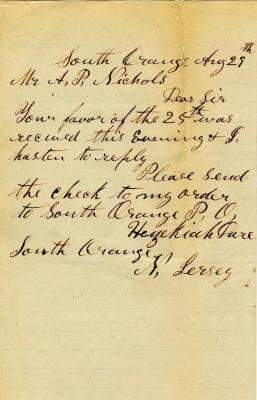 South Orange Aug 29th
Mr A. P. Nichols
Dear Sir
Your favor of the 25th was
recived this Evening & I
hasten to reply
Please send
the check to my order
to South Orange P. O,
Hezekiah
South Orange
N, Jersey